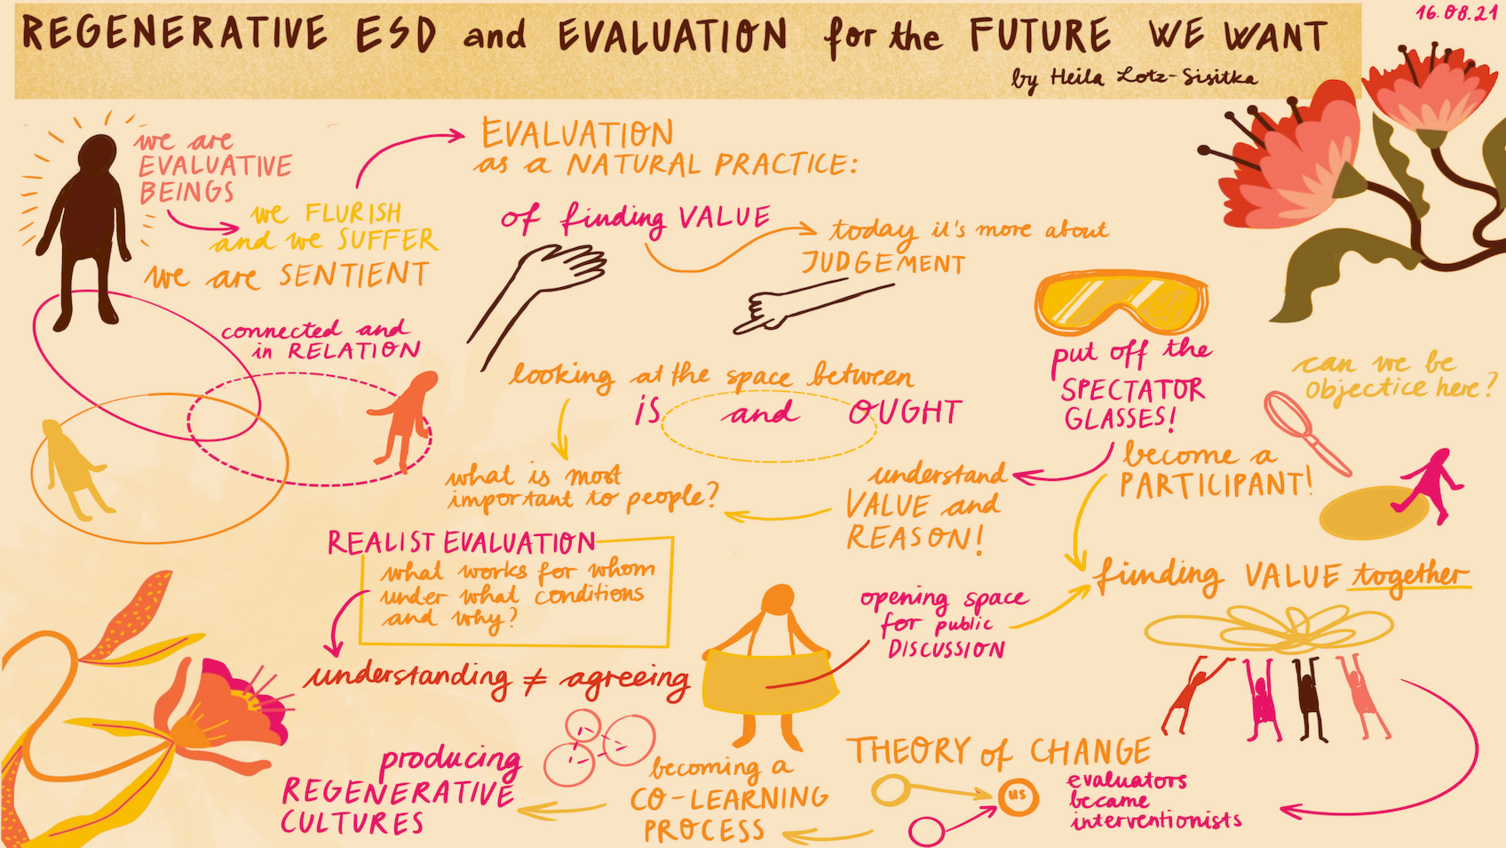 REGENERATIVE ESD and EVALUATION for the FUTURE WE WANT
16.08.21
by Heila Lotz-Sisitka
we are
EVALUATIVE
BEINGS
we FLURISH
and we SUFFER
we are SENTIENT
connected and
in RELATION
EVALUATION
as a NATURAL PRACTICE:
of finding VALUE
today it's more about
JUDGEMENT
looking at the space between
IS and OUGHT
what is most
important to people?
understand
VALUE and
REASON!
put off the
SPECTATOR
GLASSES!
can we be
objectice here?
become a
PARTICIPANT!
finding VALUE together
REALIST EVALUATION
what works for whom
under what conditions
and why?
understanding ≠ agreeing
opening space
for public
DISCUSSION
THEORY of CHANGE
us
evaluators
became
interventionists
becoming a
CO-LEARNING
PROCESS
producing
REGENERATIVE
CULTURES